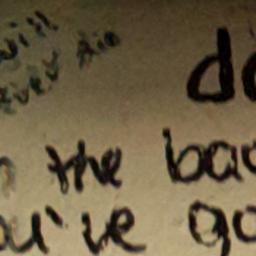 will
ever die
do
the bac
ou've go